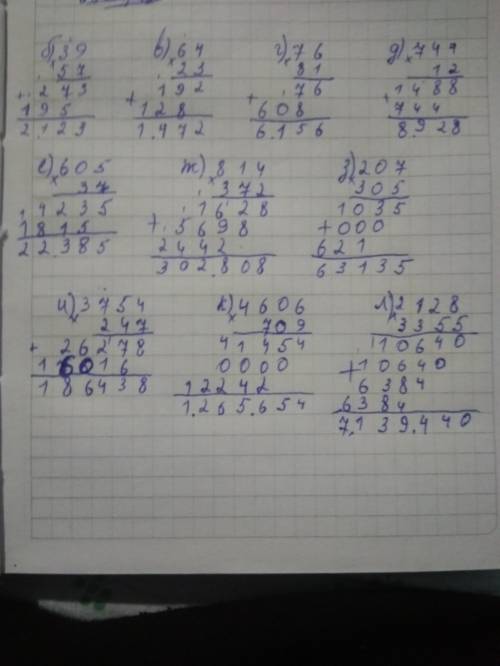 б) 39 в) 64 г) 76 д) 744
× 57 × 23 × 81 × 12
273 192 76 1488
+ 195 + 128 + 608 + 744
2.123 1.472 6.156 8.928
е) 605 ж) 814 з) 207
× 37 × 372 × 305
4235 1628 1035
1815 + 5698 + 000
22.385 2442 621
302.808 63135
и) 3754 к) 4606 л) 2128
× 247 × 709 × 3355
+ 26278 41454 10640
16016 0000 + 10640
186438 12242 6384
1.265.654 6384
7.139.440